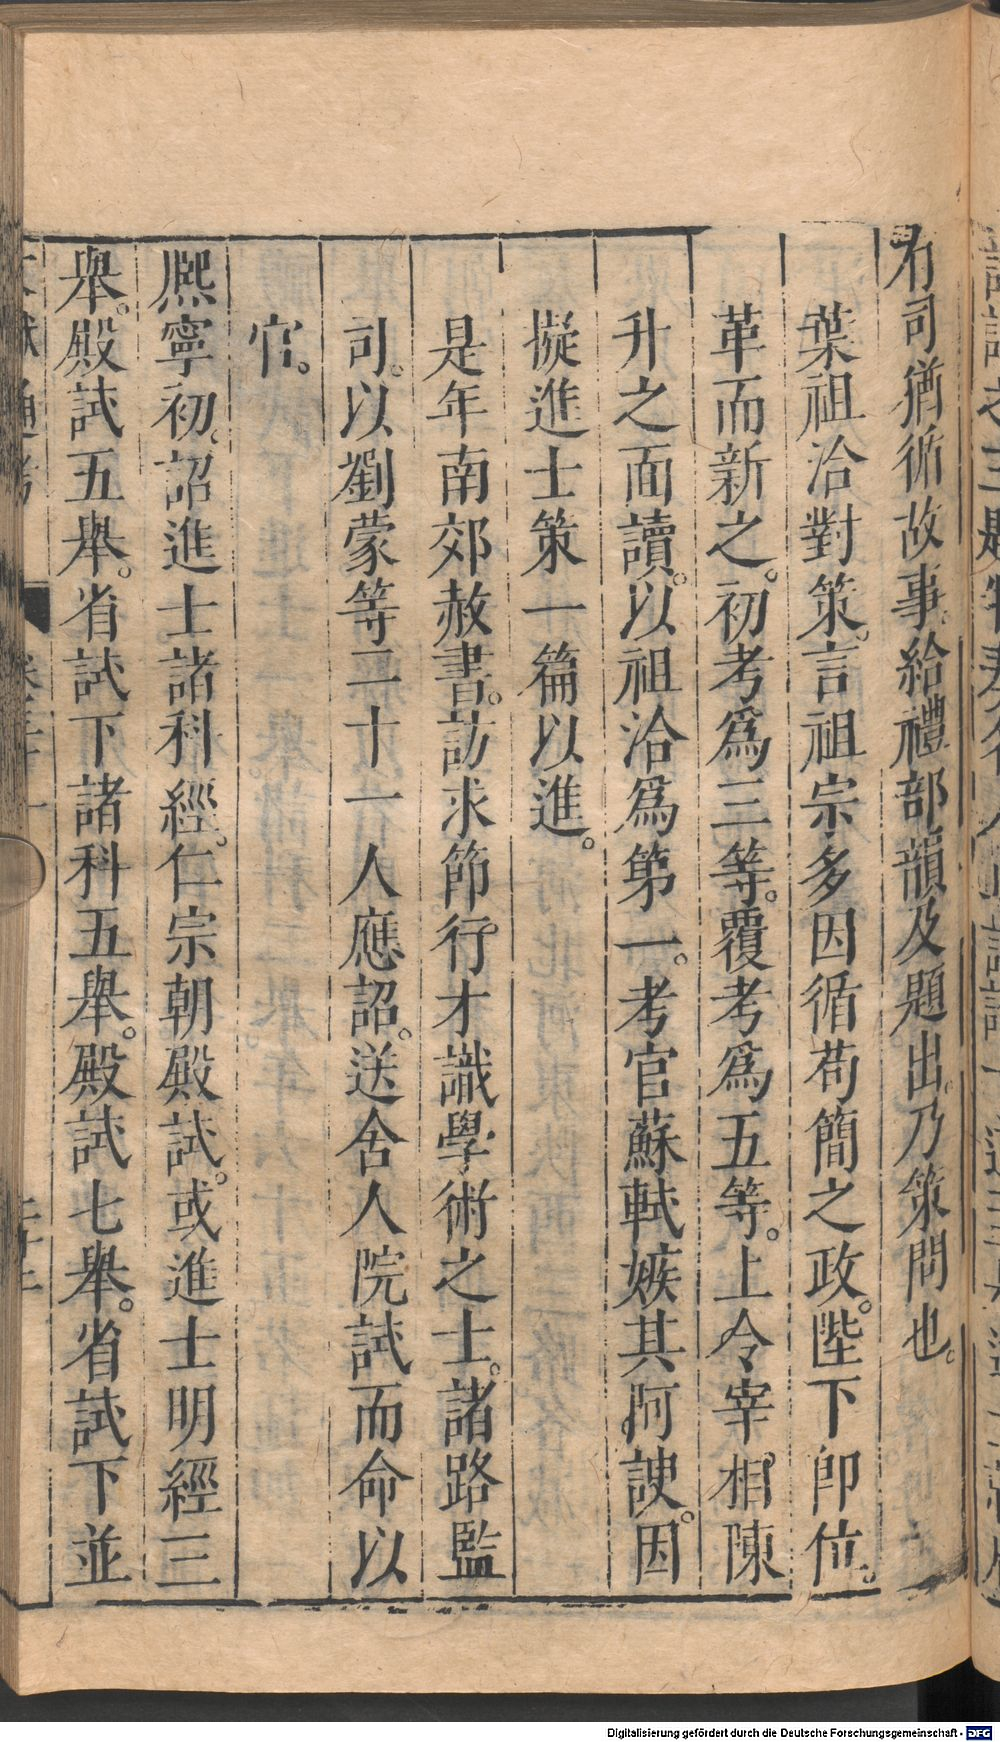 有司猶循故事。給禮部韻及題出。乃策問也。
葉祖洽對策。言祖宗多因循苟簡之政。陛下卽位。
革而新之。初考爲三等。覆考爲五等。上令宰相陳
升之面讀。以祖洽爲第一。考官蘇軾嫉其阿諛。因
擬進士策一篇以進。
是年南郊赦書。訪求節行才識學術之士。諸路監
司。以劉蒙等二十一人應詔。送舍人院試而命以
官。
熈寧初。詔進士諸科經。仁宗朝殿試。或進士明經三
舉。殿試五舉。省試下諸科五舉。殿試七舉。省試下並
Digitalisierung gefördert durch die Deutsche Forschungsgemeinschaft - DFG